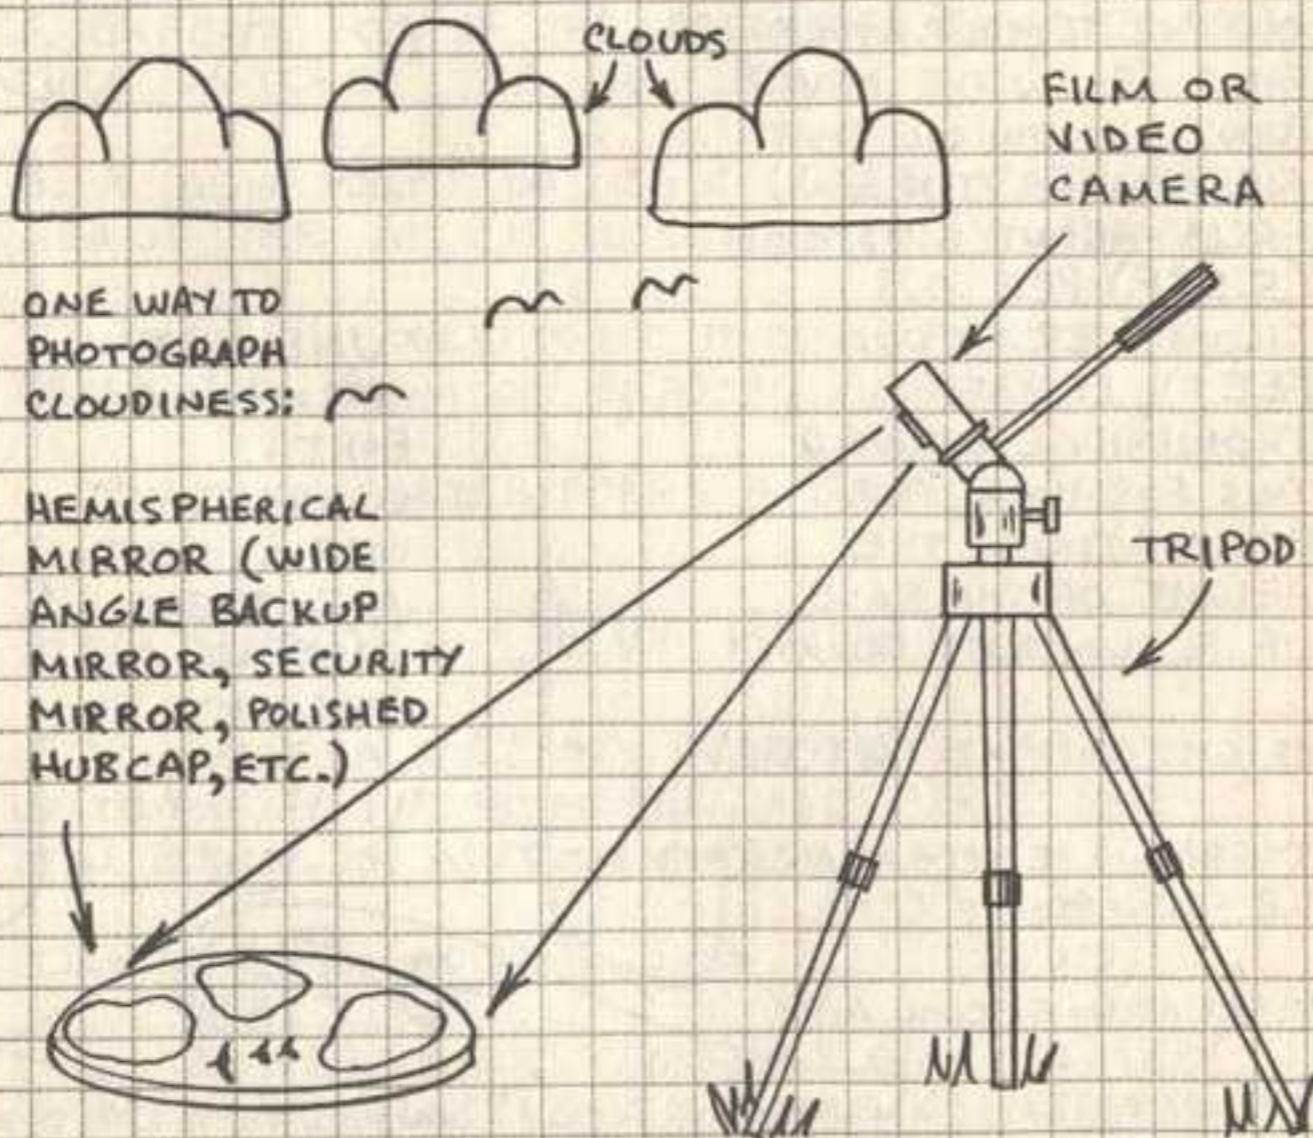 CLOUDS
FILM OR
VIDEO
CAMERA
ONE WAY TO
PHOTOGRAPH
CLOUDINESS:
HEMISPHERICAL
MIRROR (WIDE
ANGLE BACKUP
MIRROR, SECURITY
MIRROR, POLISHED
HUBCAP, ETC.)
TRIPOD